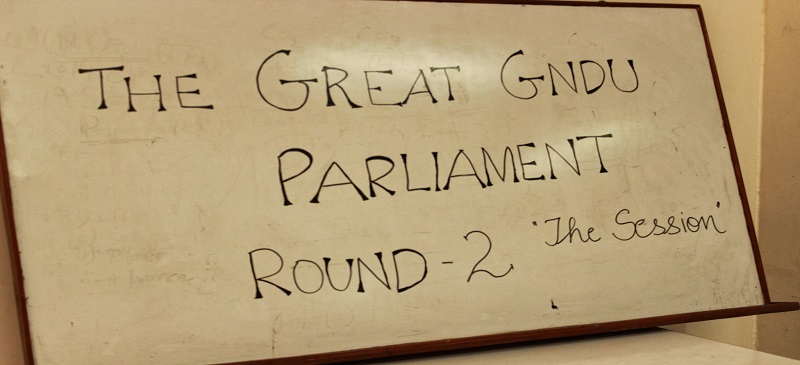 THE GREAT GNDU
PARLIAMENT
ROUND-2 "The Session"